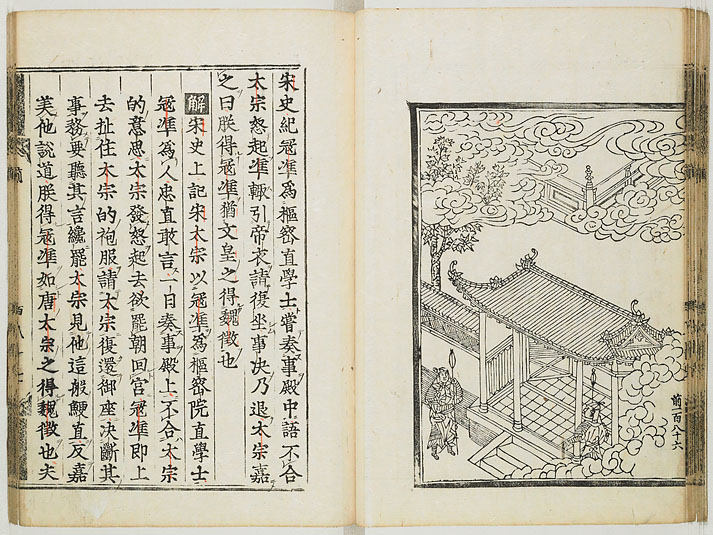 前一百八十六
宋史紀冦準為樞密直學士嘗奏事殿中語不合
太宗怒起準輙引帝衣請復坐事决乃退太宗嘉
之曰朕得冦準猶文皇之得魏徵也
解宋史上記宋太宗以冦準為樞密院直學士
冦準為人忠直敢言一日奏事殿上不合太宗
的意思太宗發怒起去欲罷朝回宮冦準即上
去扯住太宗的袍服請太宗復還御座决斷其
事務要聽其言纔罷太宗見他這般鯁直反嘉
美他說道朕得冦準如唐太宗之得魏徵也夫